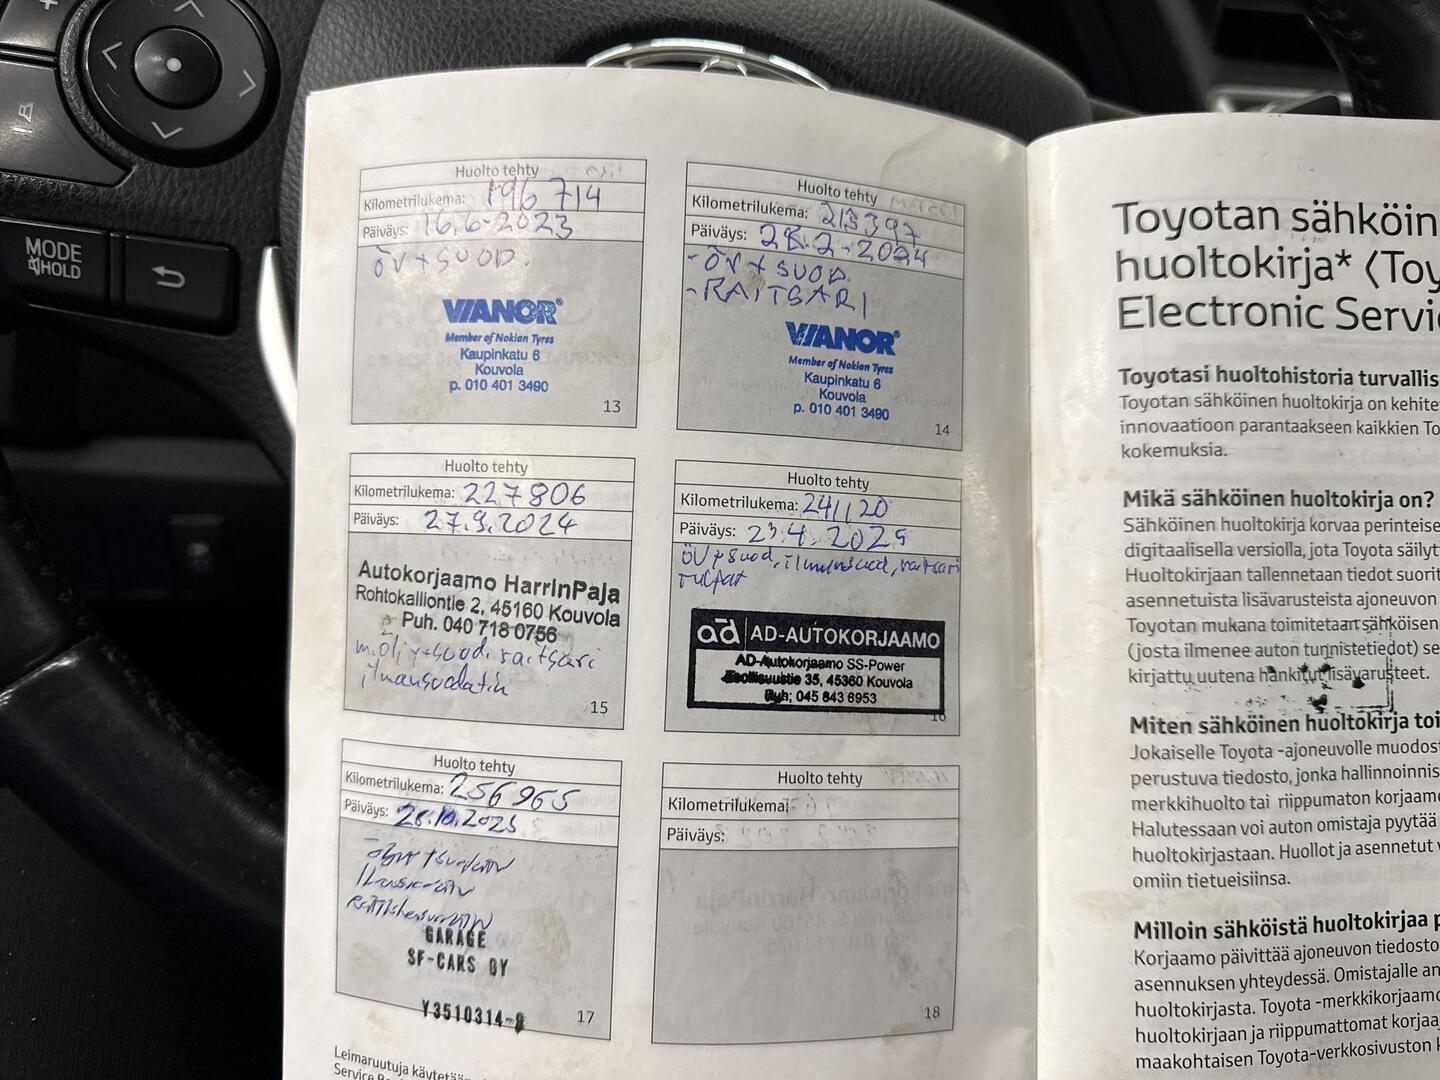 MODE
HOLD
Huolto tehty
Kilometrilukema: 196 714
Päiväys: 16.6.2023
ÖV + SUOD.
VIANOR®
Member of Nokian Tyres
Kaupinkatu 6
Kouvola
p. 010 401 3490
13
Huolto tehty
Kilometrilukema: 213397
Päiväys: 28.2.2024
- ÖV + SUOD.
- RAITSARI
VIANOR®
Member of Nokian Tyres
Kaupinkatu 6
Kouvola
p. 010 401 3490
14
Huolto tehty
Kilometrilukema: 227806
Päiväys: 27.9.2024
Autokorjaamo HarrinPaja
Rohtokalliontie 2, 45160 Kouvola
Puh. 040 718 0756
m.öljy+suod. raitsari
ilmansuodatin
15
Huolto tehty
Kilometrilukema: 241120
Päiväys: 23.4.2025
ÖV + suod, ilmansuod, raitsari
tulpat
ad AD-AUTOKORJAAMO
AD-Autokorjaamo SS-Power
35, 45360 Kouvola
Puh; 045 843 6953
16
Huolto tehty
Kilometrilukema: 256965
Päiväys: 28.10.2025
GARAGE
SF-CARS OY
Y3510314-
17
Huolto tehty
Kilometrilukema:
Päiväys:
18
Leimaruutuja
Toyotan sähköin
huoltokirja* (Toy
Electronic Servi
Toyotasi huoltohistoria turvallis
Toyotan sähköinen huoltokirja on kehite
innovaatioon parantaakseen kaikkien To
kokemuksia.
Mikä sähköinen huoltokirja on?
Sähköinen huoltokirja korvaa perinteise
digitaalisella versiolla, jota Toyota säilyt
Huoltokirjaan tallennetaan tiedot suorit
asennetuista lisävarusteista ajoneuvon
Toyotan mukana toimitetaan sähköisen
(josta ilmenee auton tunnistetiedot) se
kirjattu uutena hankitut lisävarusteet.
Miten sähköinen huoltokirja toi
Jokaiselle Toyota -ajoneuvolle muodost
perustuva tiedosto, jonka hallinnoinnis
merkkihuolto tai riippumaton korjaam
Halutessaan voi auton omistaja pyytää
huoltokirjastaan. Huollot ja asennetut
omiin tietueisiinsa.
Milloin sähköistä huoltokirjaa p
Korjaamo päivittää ajoneuvon tiedosto
asennuksen yhteydessä. Omistajalle an
huoltokirjasta. Toyota -merkkikorjaamo
huoltokirjaan ja riippumattomat korjaa
maakohtaisen Toyota-verkkosivuston k